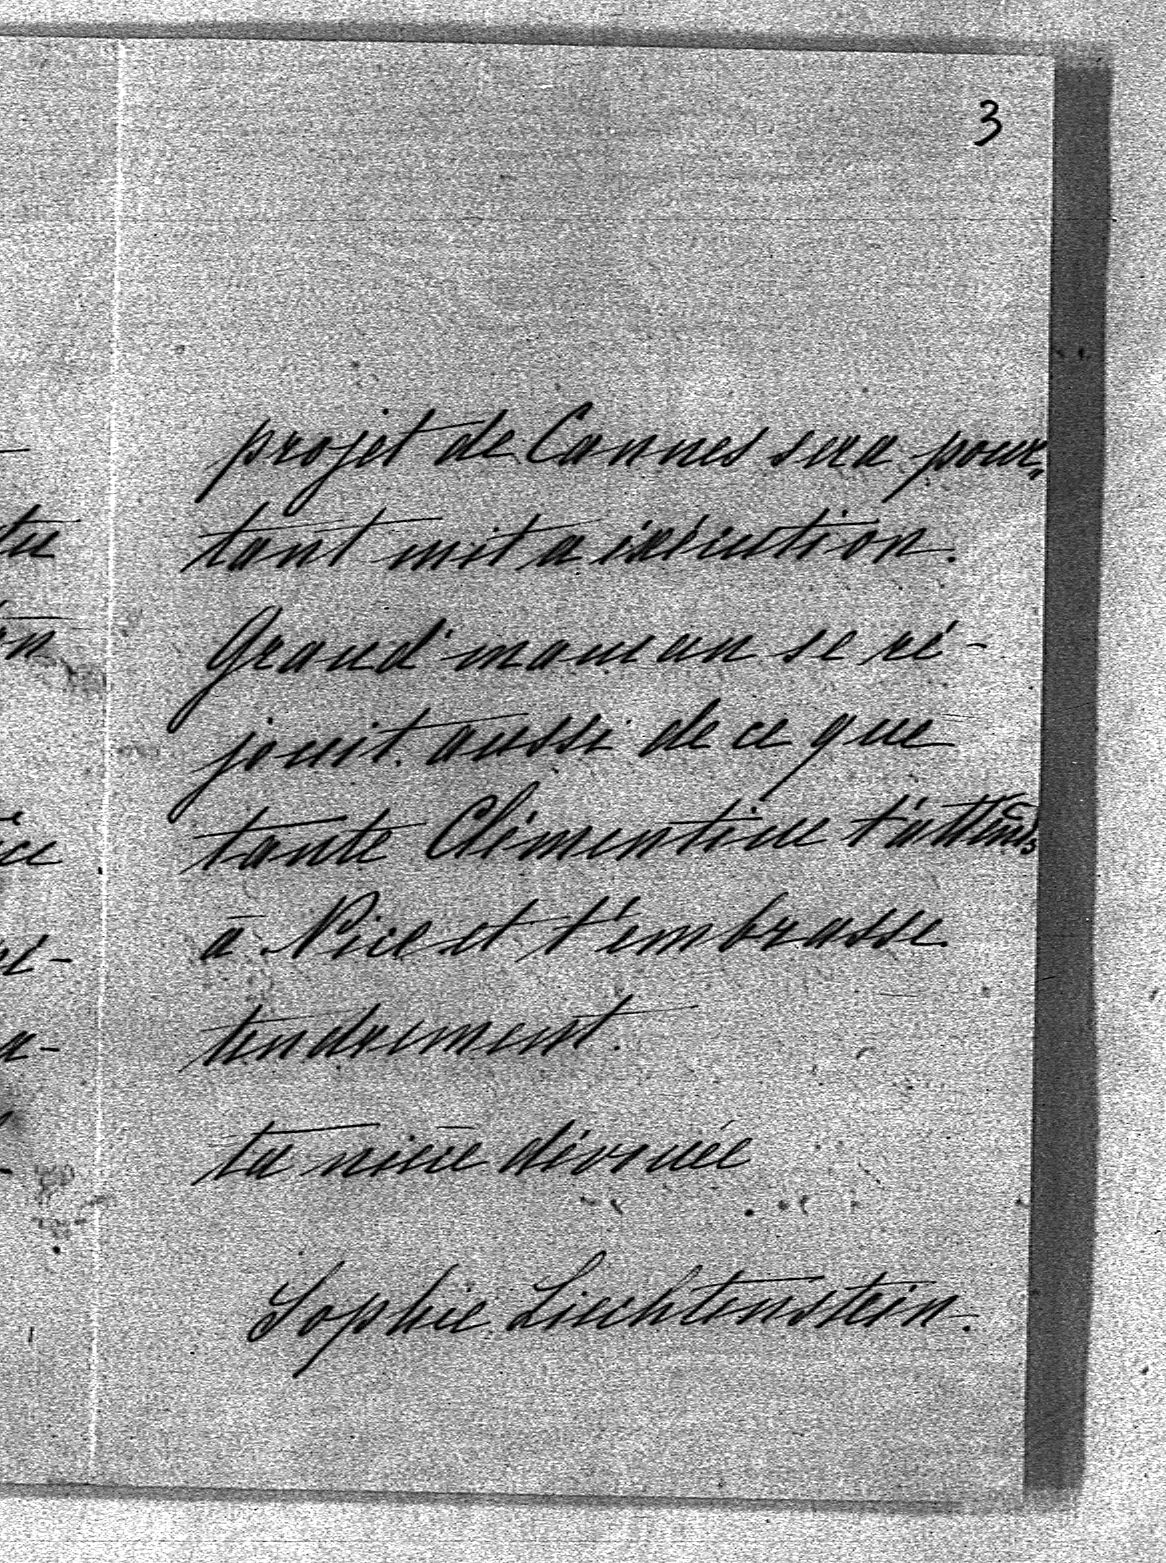 3
projet de Cannes sera pour,
tant mit a exécution.
Grand'maman se ré-
jouit aussi de ce que
tante Clémentine t'attends
à Nice et t'embrasse
tendrement.
ta nièce dévouée
Sophie Liechtenstein.